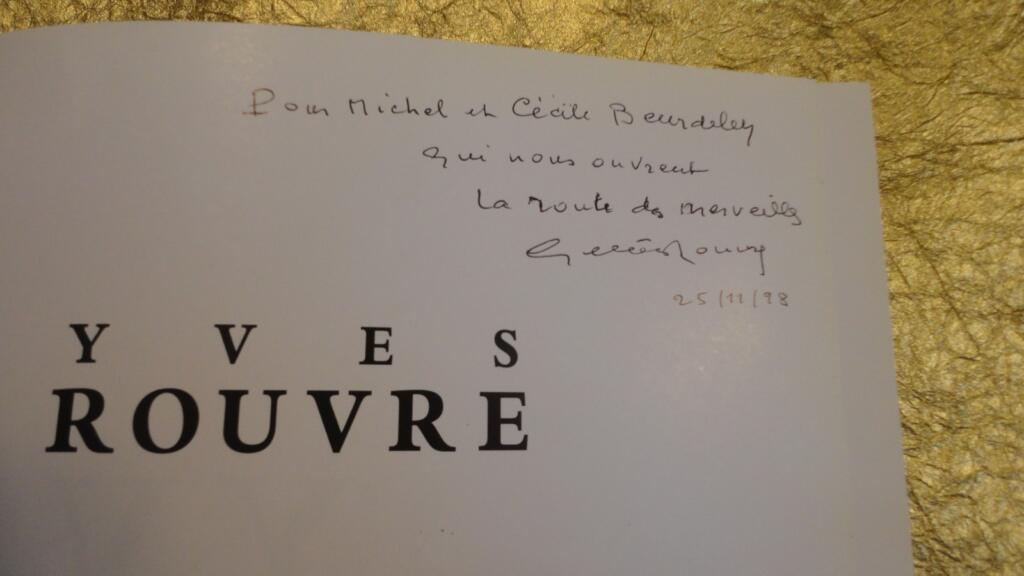 Pour Michel et Cécile Beurdeley
qui nous ouvrent
la route des merveilles
25/11/98
Y V E S
ROUVRE